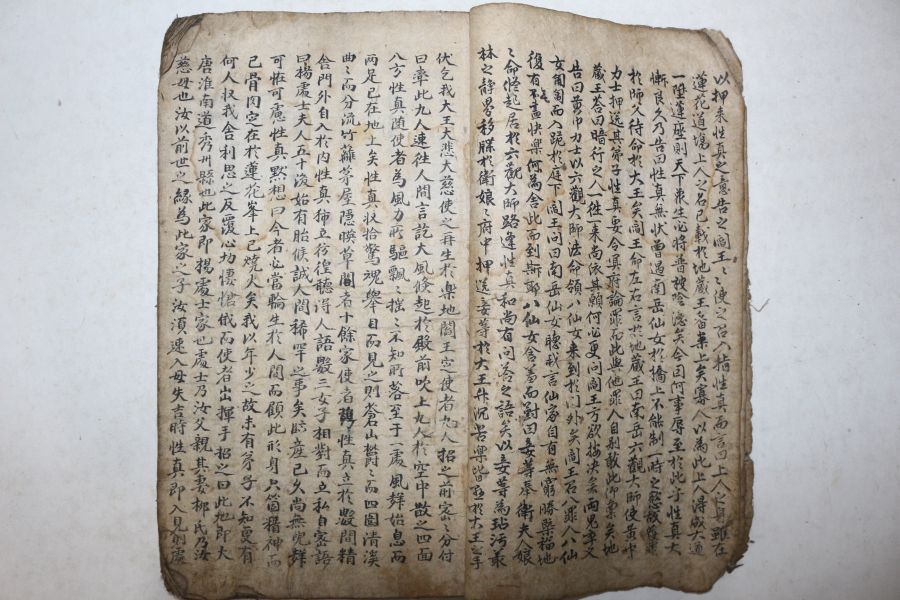 以押來性真之意告之閻王々使之召入指性真而言曰上人之身雖在
蓮花道場上人之名已載於地藏王香案上矣寡人以為此上人得成大道
一陞蓮座則天下衆生必將普被陰德矣今因何事辱至於此乎性真大
慚良久乃告曰性真無狀曾遇南岳仙女於橋上不能制一時之慾故獲罪
於師父待命於大王矣閻王命左右言於地藏王曰南岳六觀大師使黃巾
力士押送其弟子性真要令冥府論罪而此與他罪人自別敢此仰禀矣地
藏王答曰暗行之人一徃来尚依其願何必更問閻王方欲按決矣兩鬼卒又
告曰黃巾力士以六觀大師法命領八仙女来到於門外矣閻王召入罪人八仙
女匍匐而入跪於庭下閻王問曰南岳仙女聽我言仙家自有無窮勝槩福地
後有不盡快樂何為舍此而到斯耶八仙女含羞而對曰妾等奉衛夫人娘
々命候起居於六觀大師路逢性真和尚有問答之語矣以妾等為玷污叢
林之静界移牒於衛娘々府中押送妾等於大王升沉苦樂皆懸於大王之手
伏乞我大王大悲大慈使之再生於樂地閻王定使者九人招之前密々分付
曰率此九人速往人間言訖大風倏起於殿前吹上九人於空中散之四面
八方性真随使者為風力所驅飄々搖々不知所落至于一處風聲始息而
兩足已在地上矣性真收拾驚魂擧目而見之則蒼山欝々而四圍清溪
曲々而分流竹籬茅屋隱映草間者十餘家使者携性真立於數間精
舍門外自入於内性真獨立彷徨聽得人語數三女子相對而立私自密語
曰楊處士夫人五十後始有胎候誠人間稀罕之事矣臨産已久尚無兒聲
可恠可慮性真黙想曰今者必當輪生於人間而顧此形身只箇精神而
已骨肉空在於蓮花峯上已燒火矣我以年少之故未有弟子不知更有
何人收我舍利思之反覆心切悽愴俄而使者出揮手招之曰此地即大
唐淮南道秀州縣也此家即楊處士家也處士乃汝父親其妻柳氏乃汝
慈母也汝以前世之緣為此家之子汝須速入毋失吉時性真即入見則處